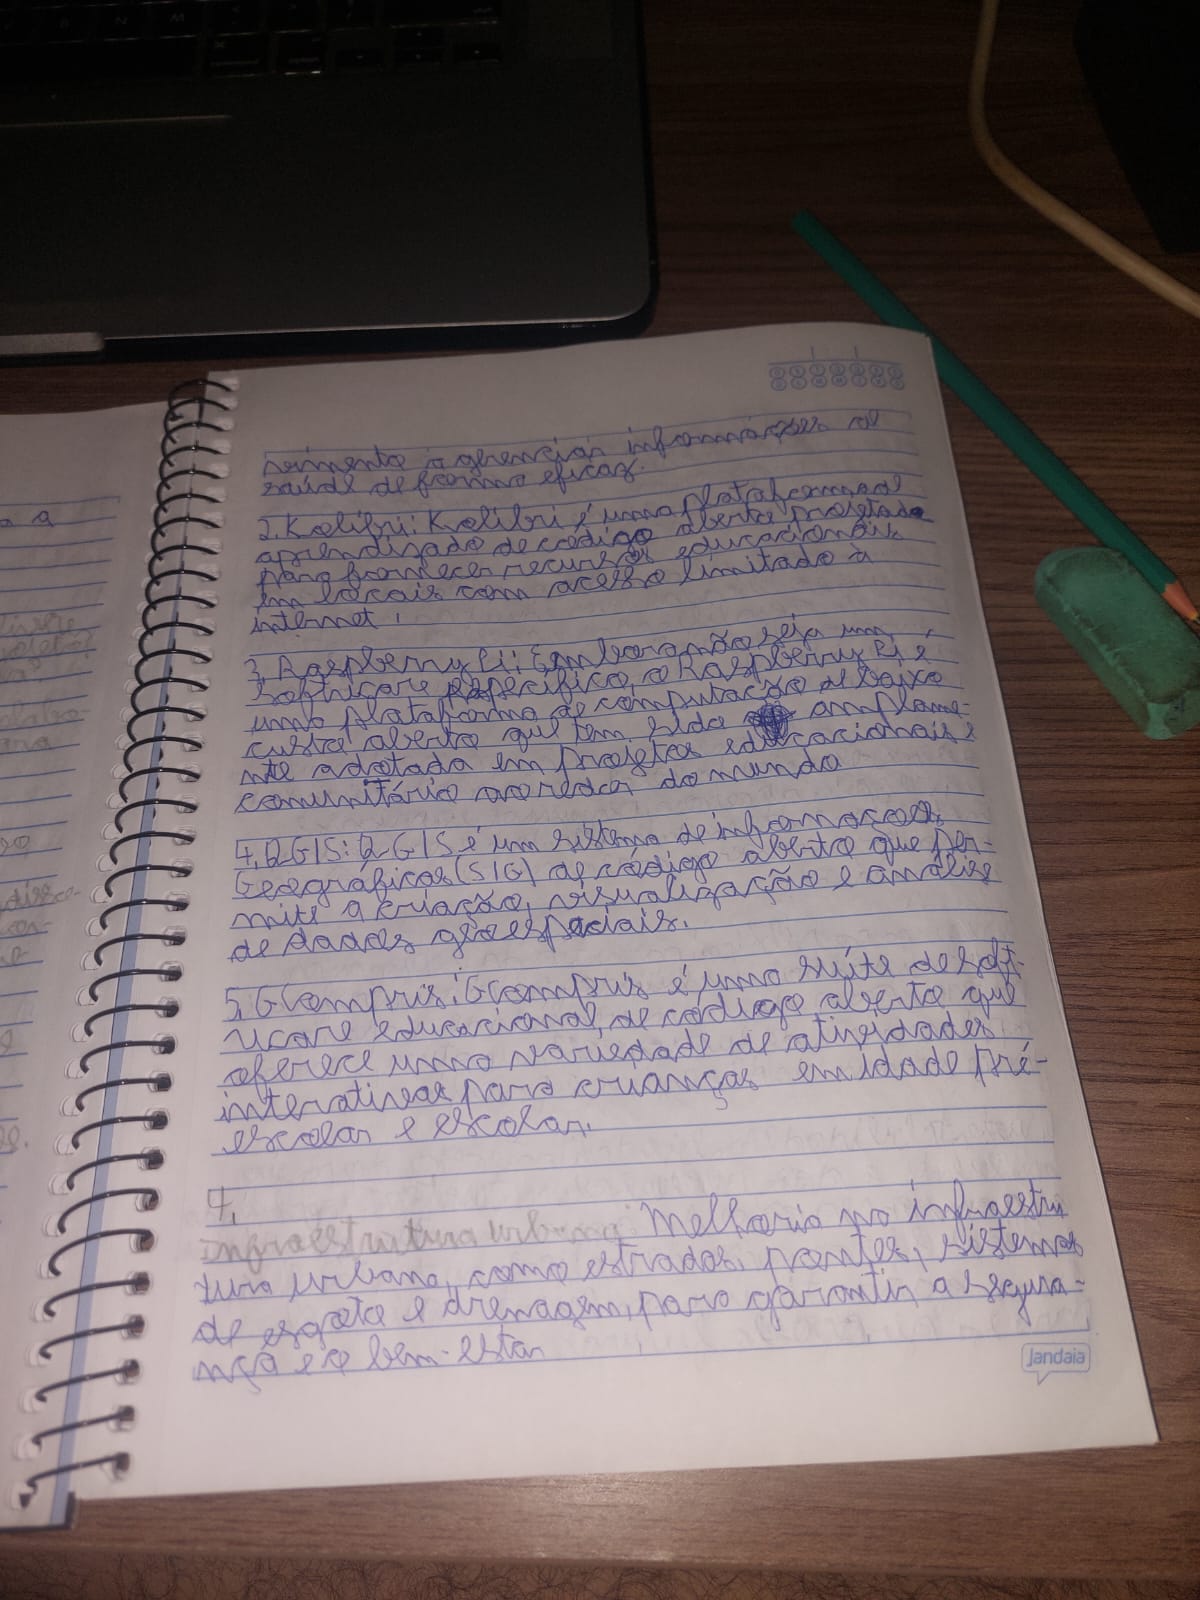 a a
vimento a gerenciar informações de
saúde de forma eficaz.
2. Kolibri: Kolibri é uma plataforma de
aprendizado de código aberto projetada
para fornecer recursos educacionais
em locais com acesso limitado à
internet.
3. Raspberry Pi: Embora não seja um
software específico, o Raspberry Pi é
uma plataforma de computação de baixo
custo aberto que tem sido amplame-
nte adotada em projetos educacionais e
comunitário ao redor do mundo
4. QGIS: QGIS é um sistema de informações
Geográficas (SIG) de código aberto que per-
mite a criação, visualização e análise
de dados geoespaciais.
5. GCompris: GCompris é uma suíte de soft-
ware educacional, de código aberto que
oferece uma variedade de atividades
interativas para crianças em idade pré-
escolar e escolar.
4.
infraestrutura urbana Melhoria na infraestru
tura urbana, como estradas, pontes, sistemas
de esgoto e drenagem, para garantir a segura-
nça e o bem-estar
Jandaia